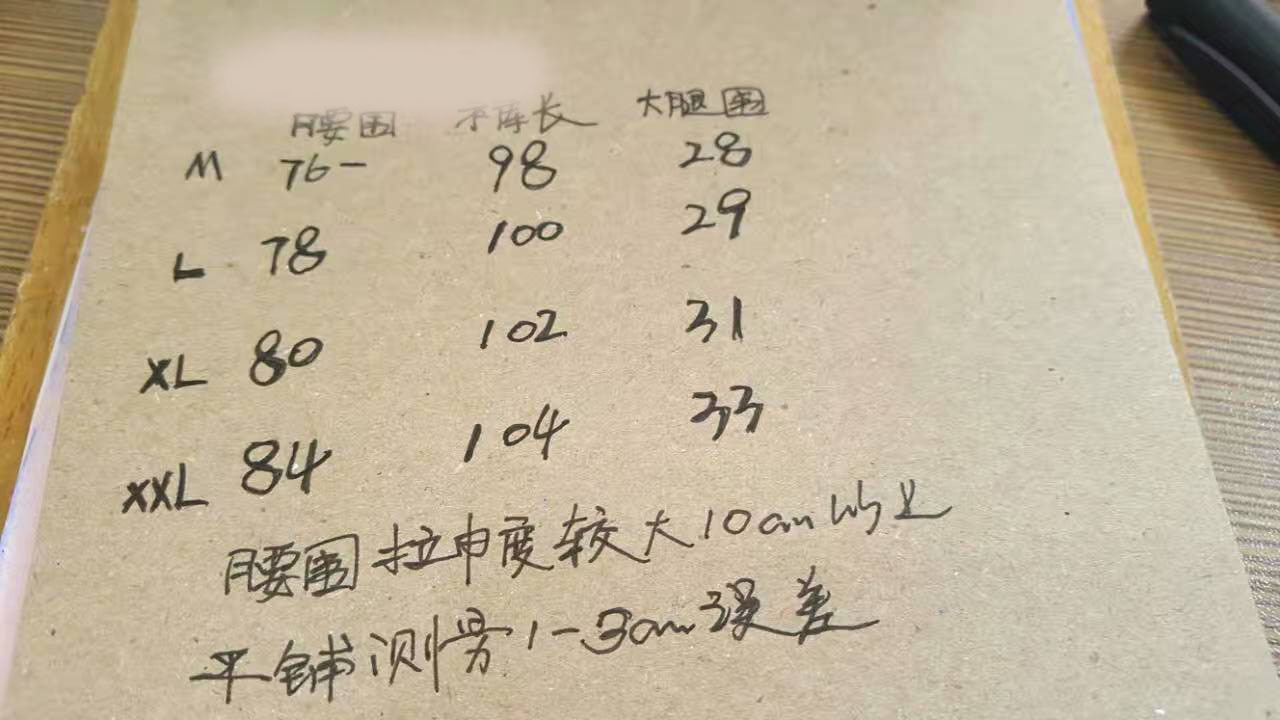 腰围 裤长 大腿围
M 76- 98 28
L 78 100 29
XL 80 102 31
XXL 84 104 33
腰围拉申度较大10cm以上
平铺测量1-3cm误差